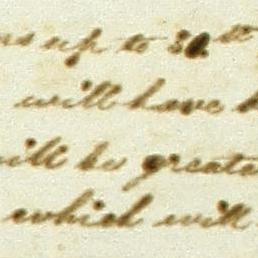 up to 30th
will have
will be greate
which will